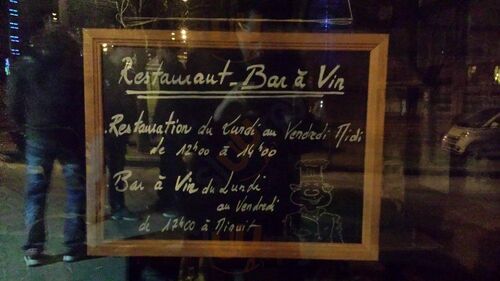 Restaurant - Bar à Vin
. Restauration du Lundi au Vendredi Midi
de 12h00 à 14h00
. Bar à Vin du Lundi
au Vendredi
de 17h00 à Minuit